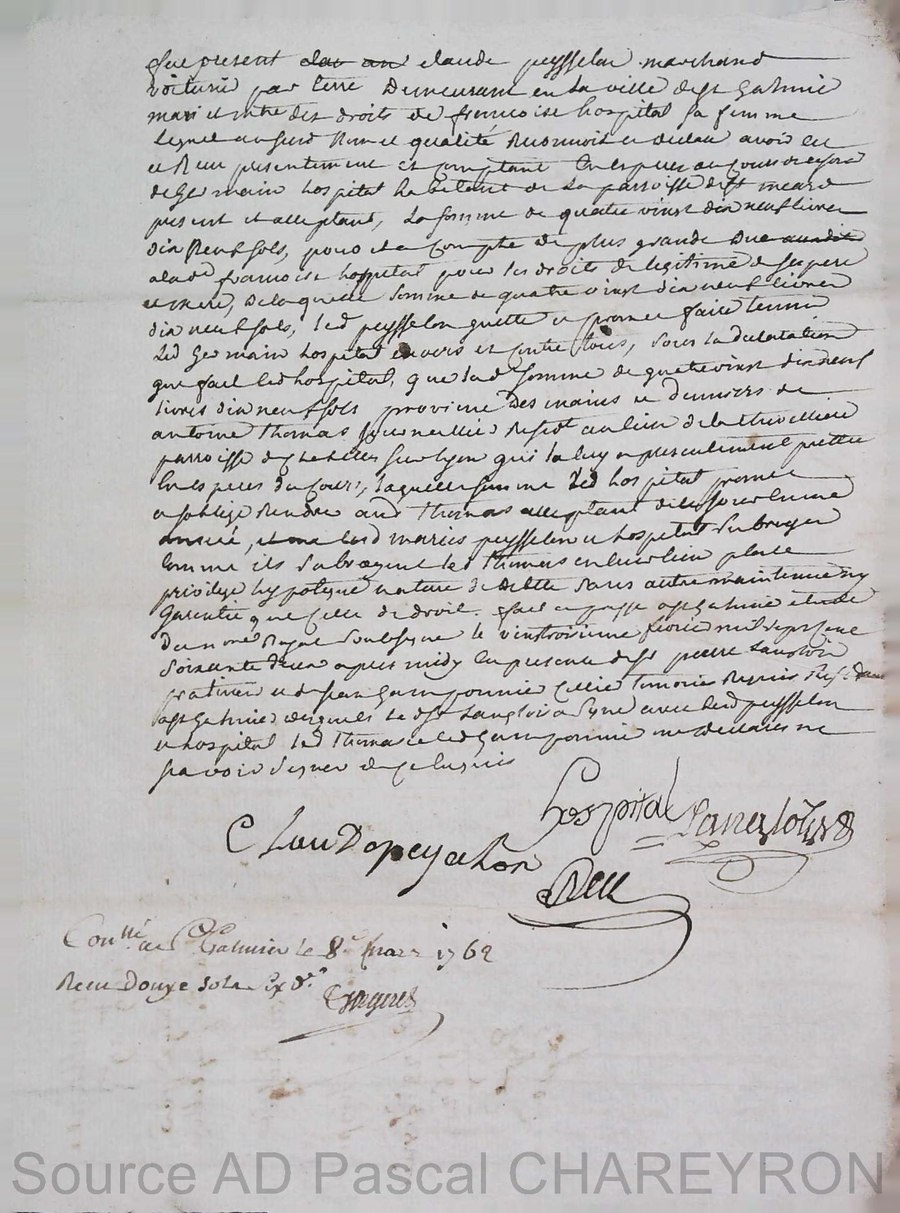 fut present claude peysselon marchand
voiturié par terre Demeurant en La ville de St Galmié
mari et m̃tre des droits de francoise hospital sa femme
Lequel au susd Nom et qualité Reconnoit et declare avoir eu
et Receu presentement et comptant En especes au Cours de
de Germain hospital habitant de La parroisse de St meard
present et acceptant, La somme de quatre vingt dix neuf livres
dix Neuf sols, pour et a Compte de plus grande due
a lade francoise hospital pour ses droits de legitime de ses pere
et mere, de laquelle somme de quatre vingt dix neuf livres
dix neuf sols, led peysselon quitte et promet faire tenir
Led Germain hospital envers et contre tous, sous la declaration
que fait led hospital, que lad somme de quatrevingt dix neuf
livres dix neuf sols provient Des mains et deniers de
antoine thomas au lieu de la
parroisse de Chazelles sur lyon qui la luy a presentement prettée
En especes du Cours, laquelle somme led hospital promet
et soblige Rendre aud thomas acceptant
année, lesd mariés peysselon et hospital subroger
Comme ils subrogent led thomas en leur lieu place
privilege hypoteque nature de debte sans autre maintenue ny
Garentie que celle de droit. fait et passé a St Galmié etude
Du nore Royal Soussigné le vintroisieme fevrie mil sept cent
soixante deux apres midy En presence de Sr pierre Langlois
praticien et de Jean temoins Requis
a St Galmier desquels le dt Sr Langlois a signé avec led peysselon
et hospital led thomas et led ont declarés ne
savoir signer de ce Enquis
hospital Langlois
Claudepeyselon
Conllé a St Galmier le 8e mars 1762
Receu Douze sols six drs